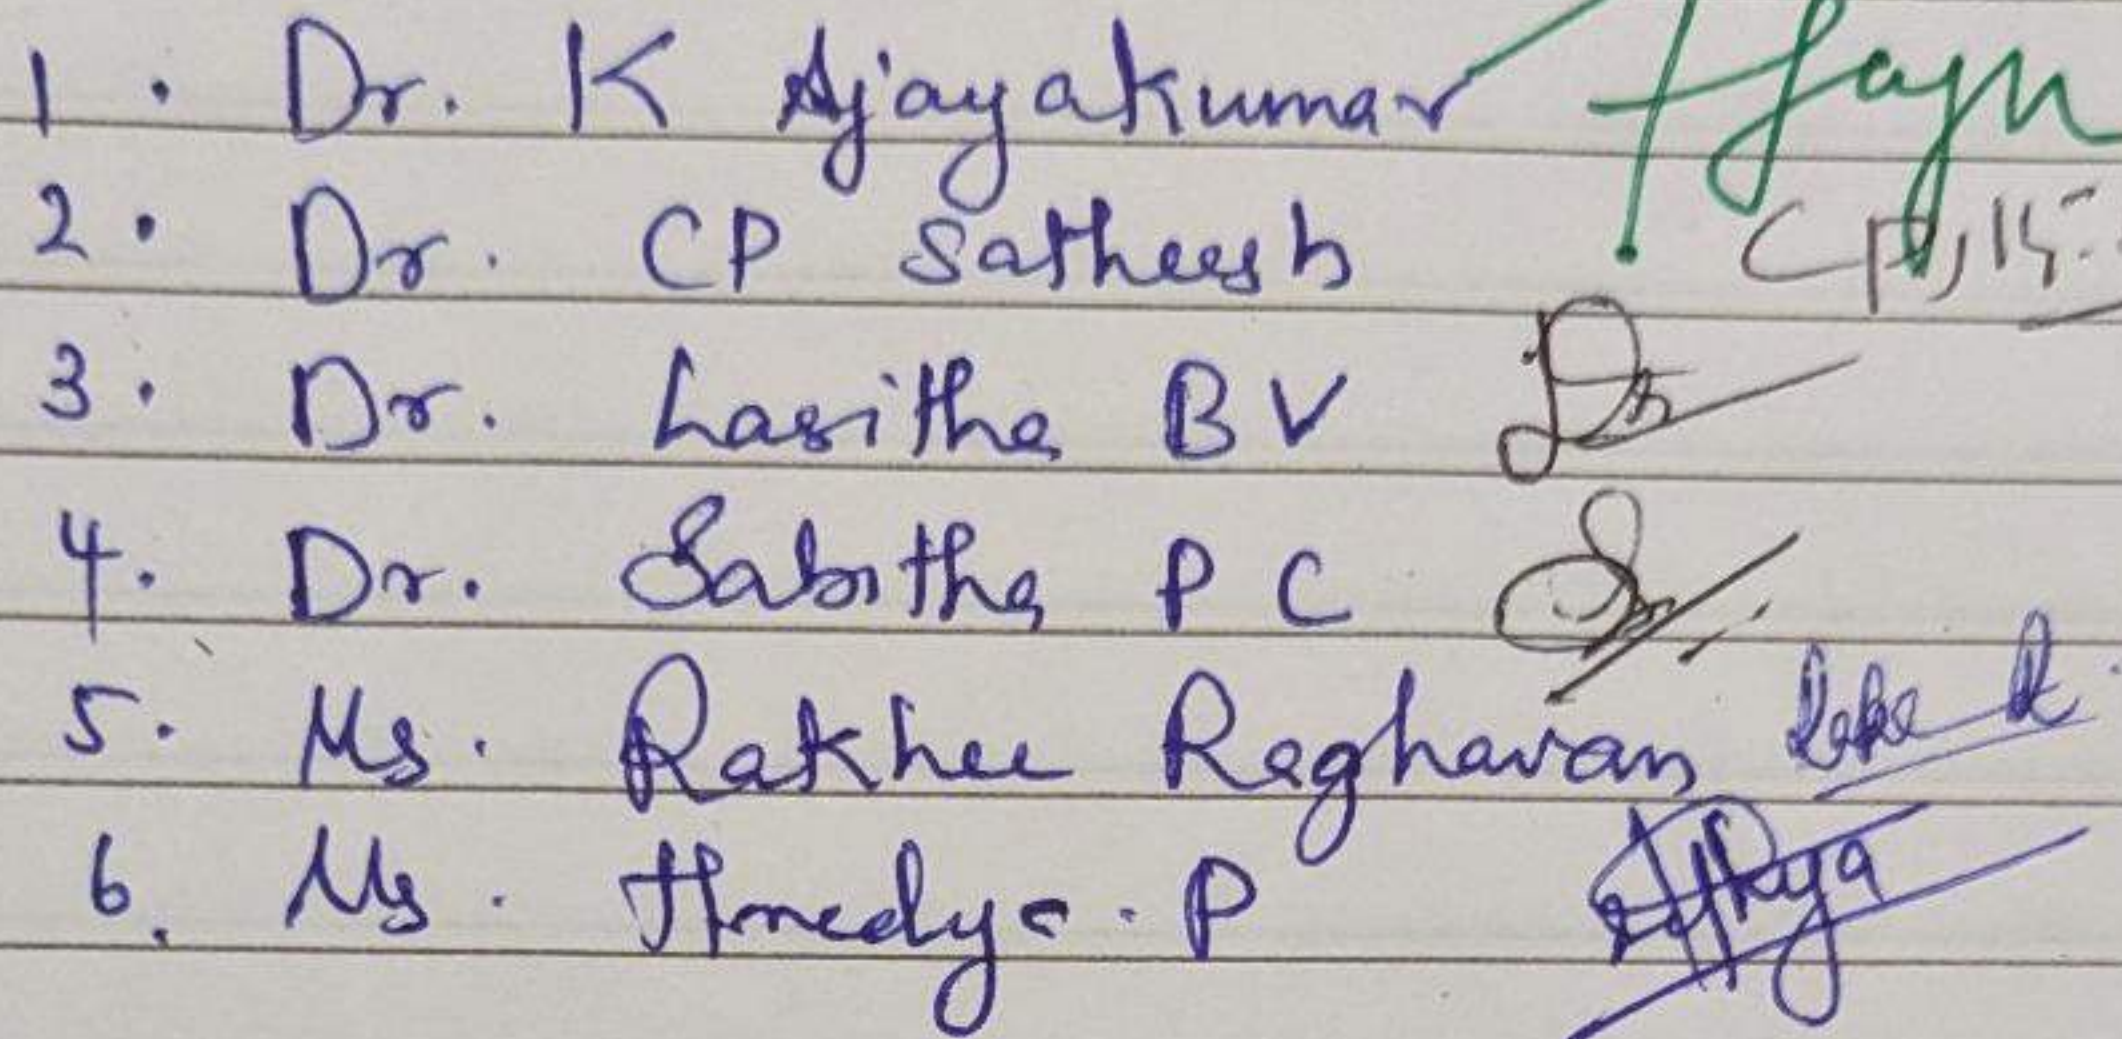 1. Dr. K Ajayakumar
2. Dr. CP Satheesh
3. Dr. Lasitha B V
4. Dr. Sabitha P C
5. Ms. Rakhee Raghavan
6. Ms. P